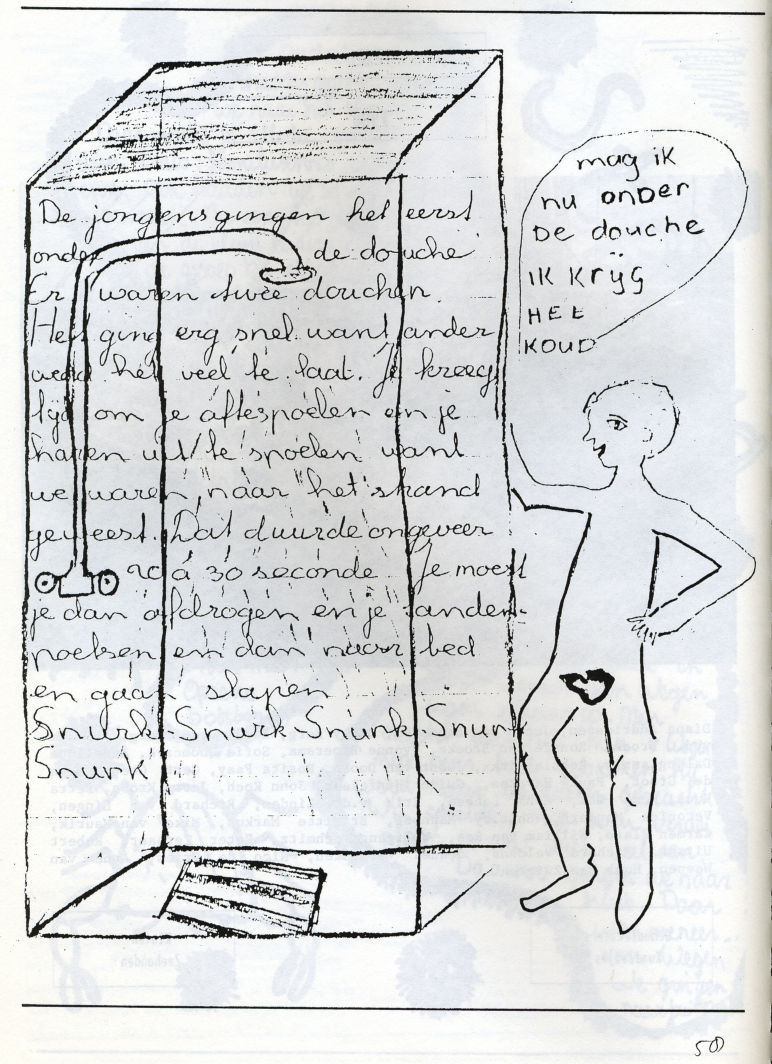 De jongens gingen het eerst
onder de douche
Er waren twee douchen.
Het ging erg snel want ander
werd het veel te laat. Je kreeg
tyd om je aftespoelen en je
haren uit te spoelen want
we waren naar het strand
geweest. Dat duurde ongeveer
20 á 30 seconde. Je moest
je dan afdrogen en je tanden-
poetsen en dan naar bed
en gaan slapen
Snurk-Snurk-Snurk-Snurk
Snurk
mag ik
nu onder
De douche
IK Krÿg
HET
KOUD
50